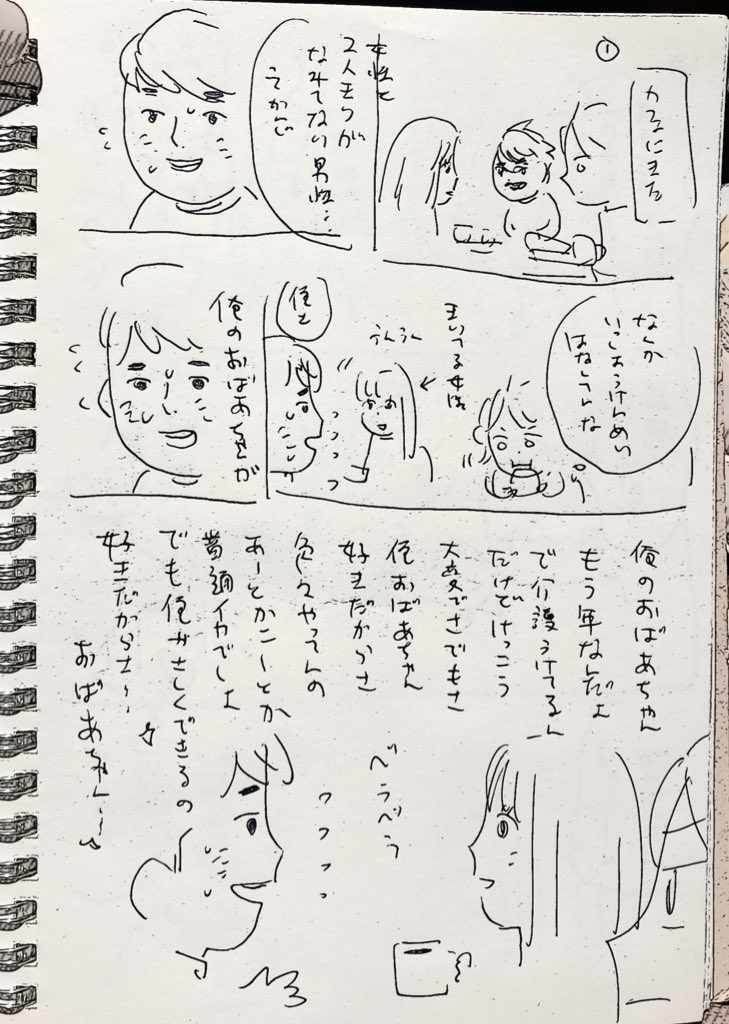 ①
カフェにきた
女性と
2人きりが
なれてない男性…
なんか
いっしょうけんめい
はなしてんな
きいてる女性
うんうん
俺さ
俺のおばあちゃんが
俺のおばあちゃん
もう年なんだよ
で介護うけてるん
だけどけっこう
大変でさでもさ
俺おばあちゃん
好きだからさ
色々やってんの
あーとかこーとか
普通イヤでしょ
でも俺やさしくできるの
好きだからさ〜
おばあちゃん〜
べらべら